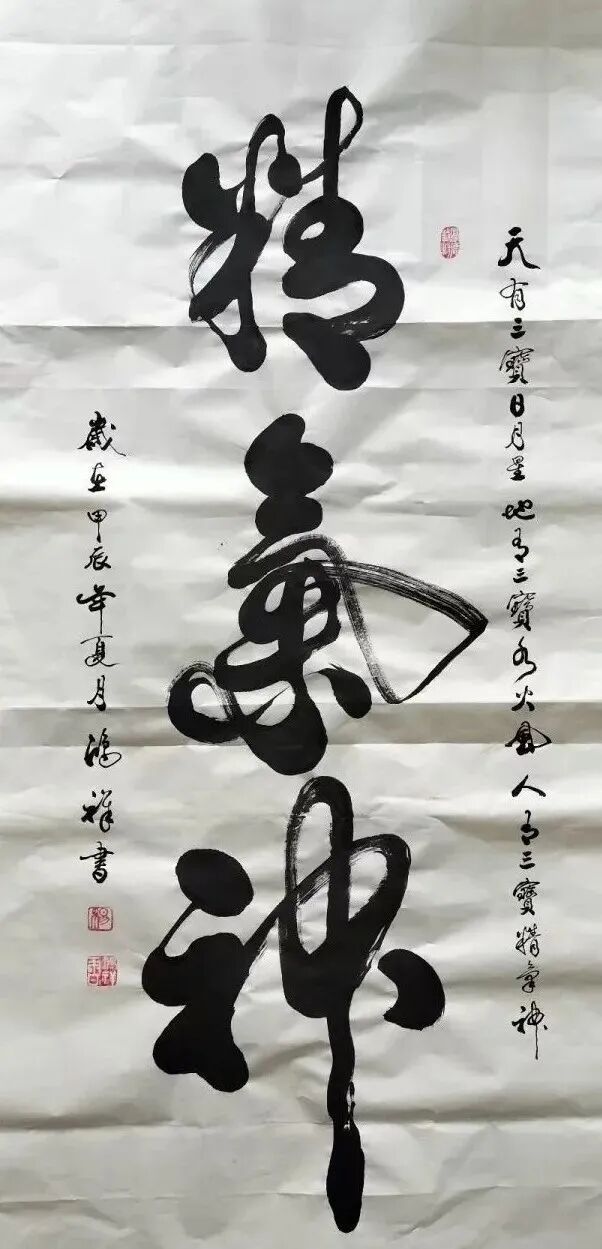 天有三寶日月星地有三寶水火風人有三寶精氣神
精氣神
歲在甲辰年夏月鴻祥書